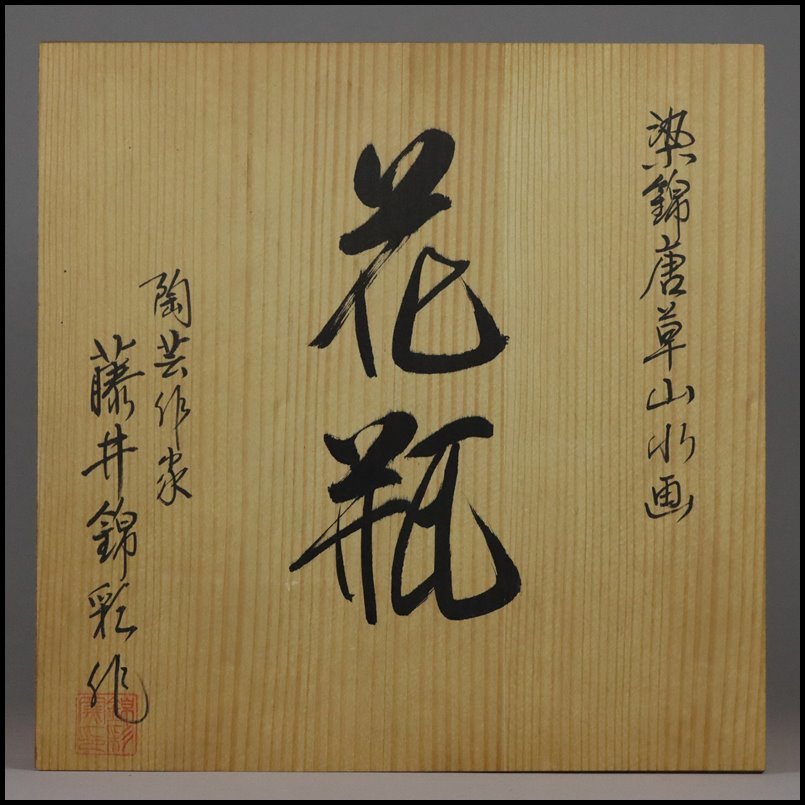 染錦唐草山水画
花瓶
陶芸作家
藤井錦彩作